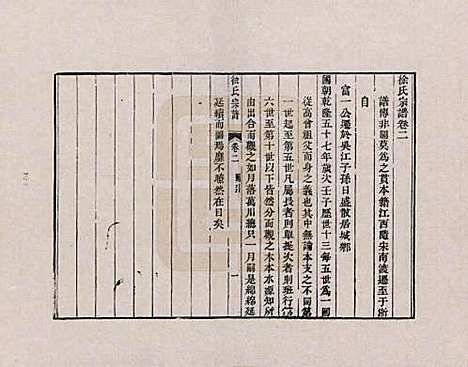 徐氏宗譜卷二
譜傳非關莫爲之貫本籍江西隨宋南渡遷至于浙
自
富一公遷於吳江子孫日盛散居城鄉
國朝乾隆五十七年歲次壬子歷世十三每五世爲一圖
從高曾祖父而身之義也其中無論本支之不同第
一世起至第五世凡屬長者則單提次者則班行第
六世至第十世以下皆然分而觀之木本水源知所
由出合而觀之如月落萬川總只一月嗣是綿綿延
延續而圖焉靡不瞭然在目矣
徐氏宗譜
卷二
一